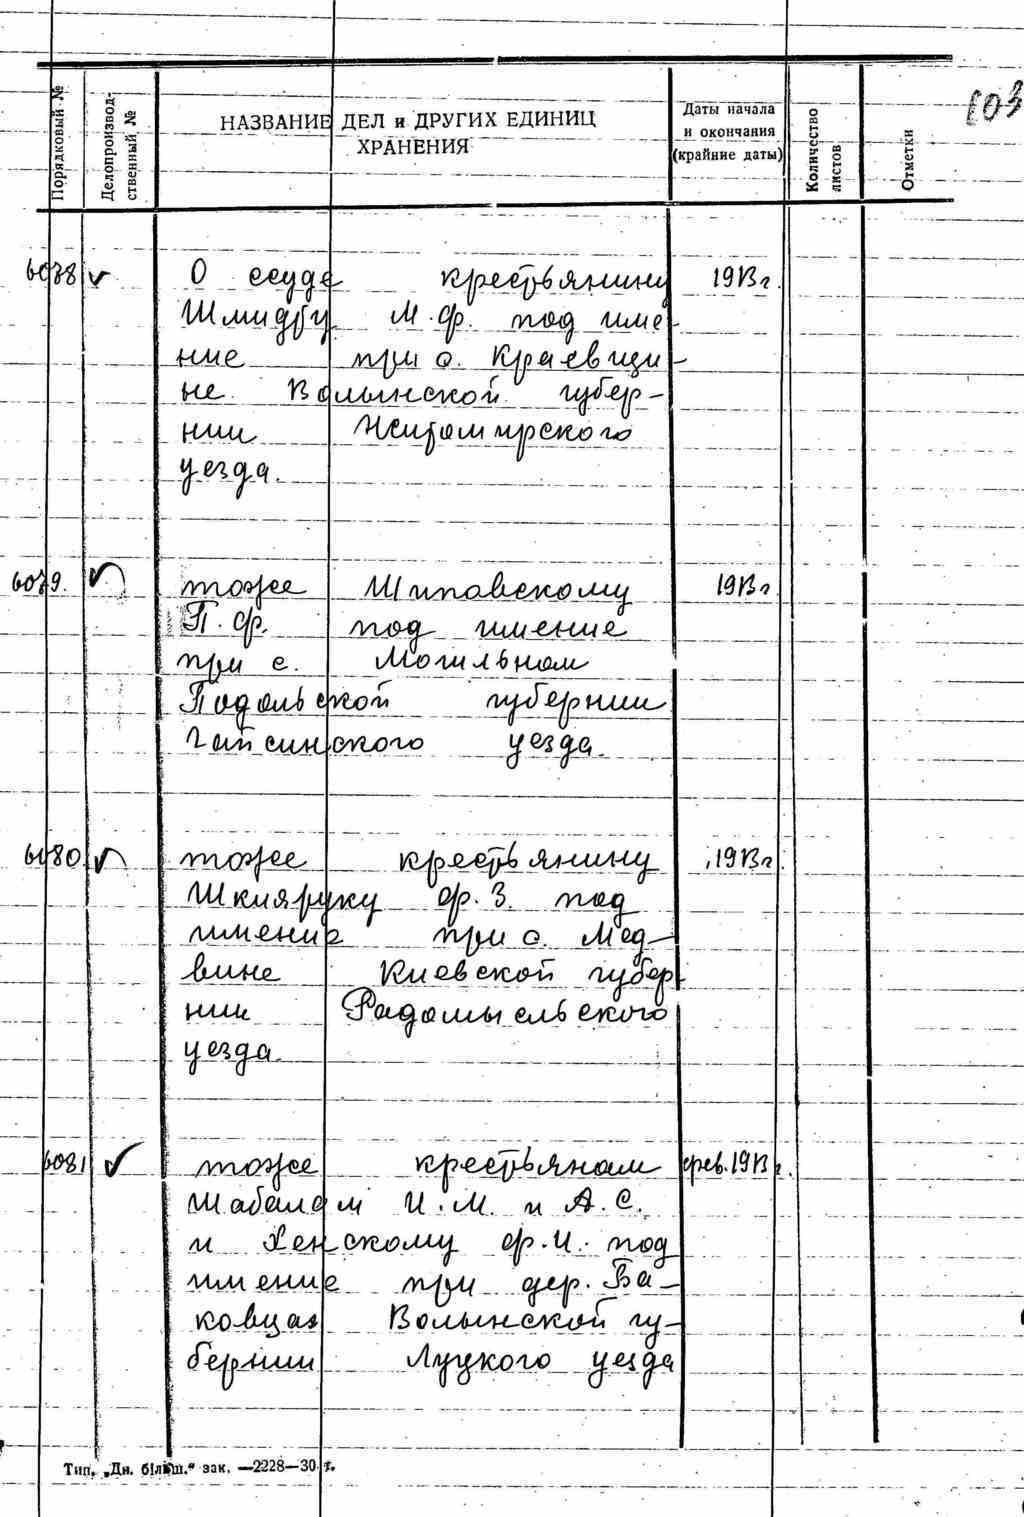 103
Порядковый №
Делопроизвод-
ственный №
НАЗВАНИЕ ДЕЛ и ДРУГИХ ЕДИНИЦ
ХРАНЕНИЯ
Даты начала
и окончания
(крайние даты)
Количество
листов
Отметки
6078 О ссуде крестьянину 1913 г.
Шмидту М.Ф. под име-
ние при с. Краевщи-
не Волынской губер-
нии Житомирского
уезда.
6079. тоже Шиповскому 1913 г.
П.Ф. под имение
при с. Могильном
Подольской губернии
Гайсинского уезда.
6080 тоже крестьянину 1913 г.
Шкляруку Ф.З. под
имение при с. Мед-
вине Киевской губер-
нии Радомысльского
уезда.
6081 тоже крестьянам фев. 1913 г.
Шабалам И.М. и А.С.
и Хенскому Ф.И. под
имение при дер. Ба-
ковцах Волынской гу-
бернии Луцкого уезда
Тип. „Дн. більш." зак. —2228—30 г.